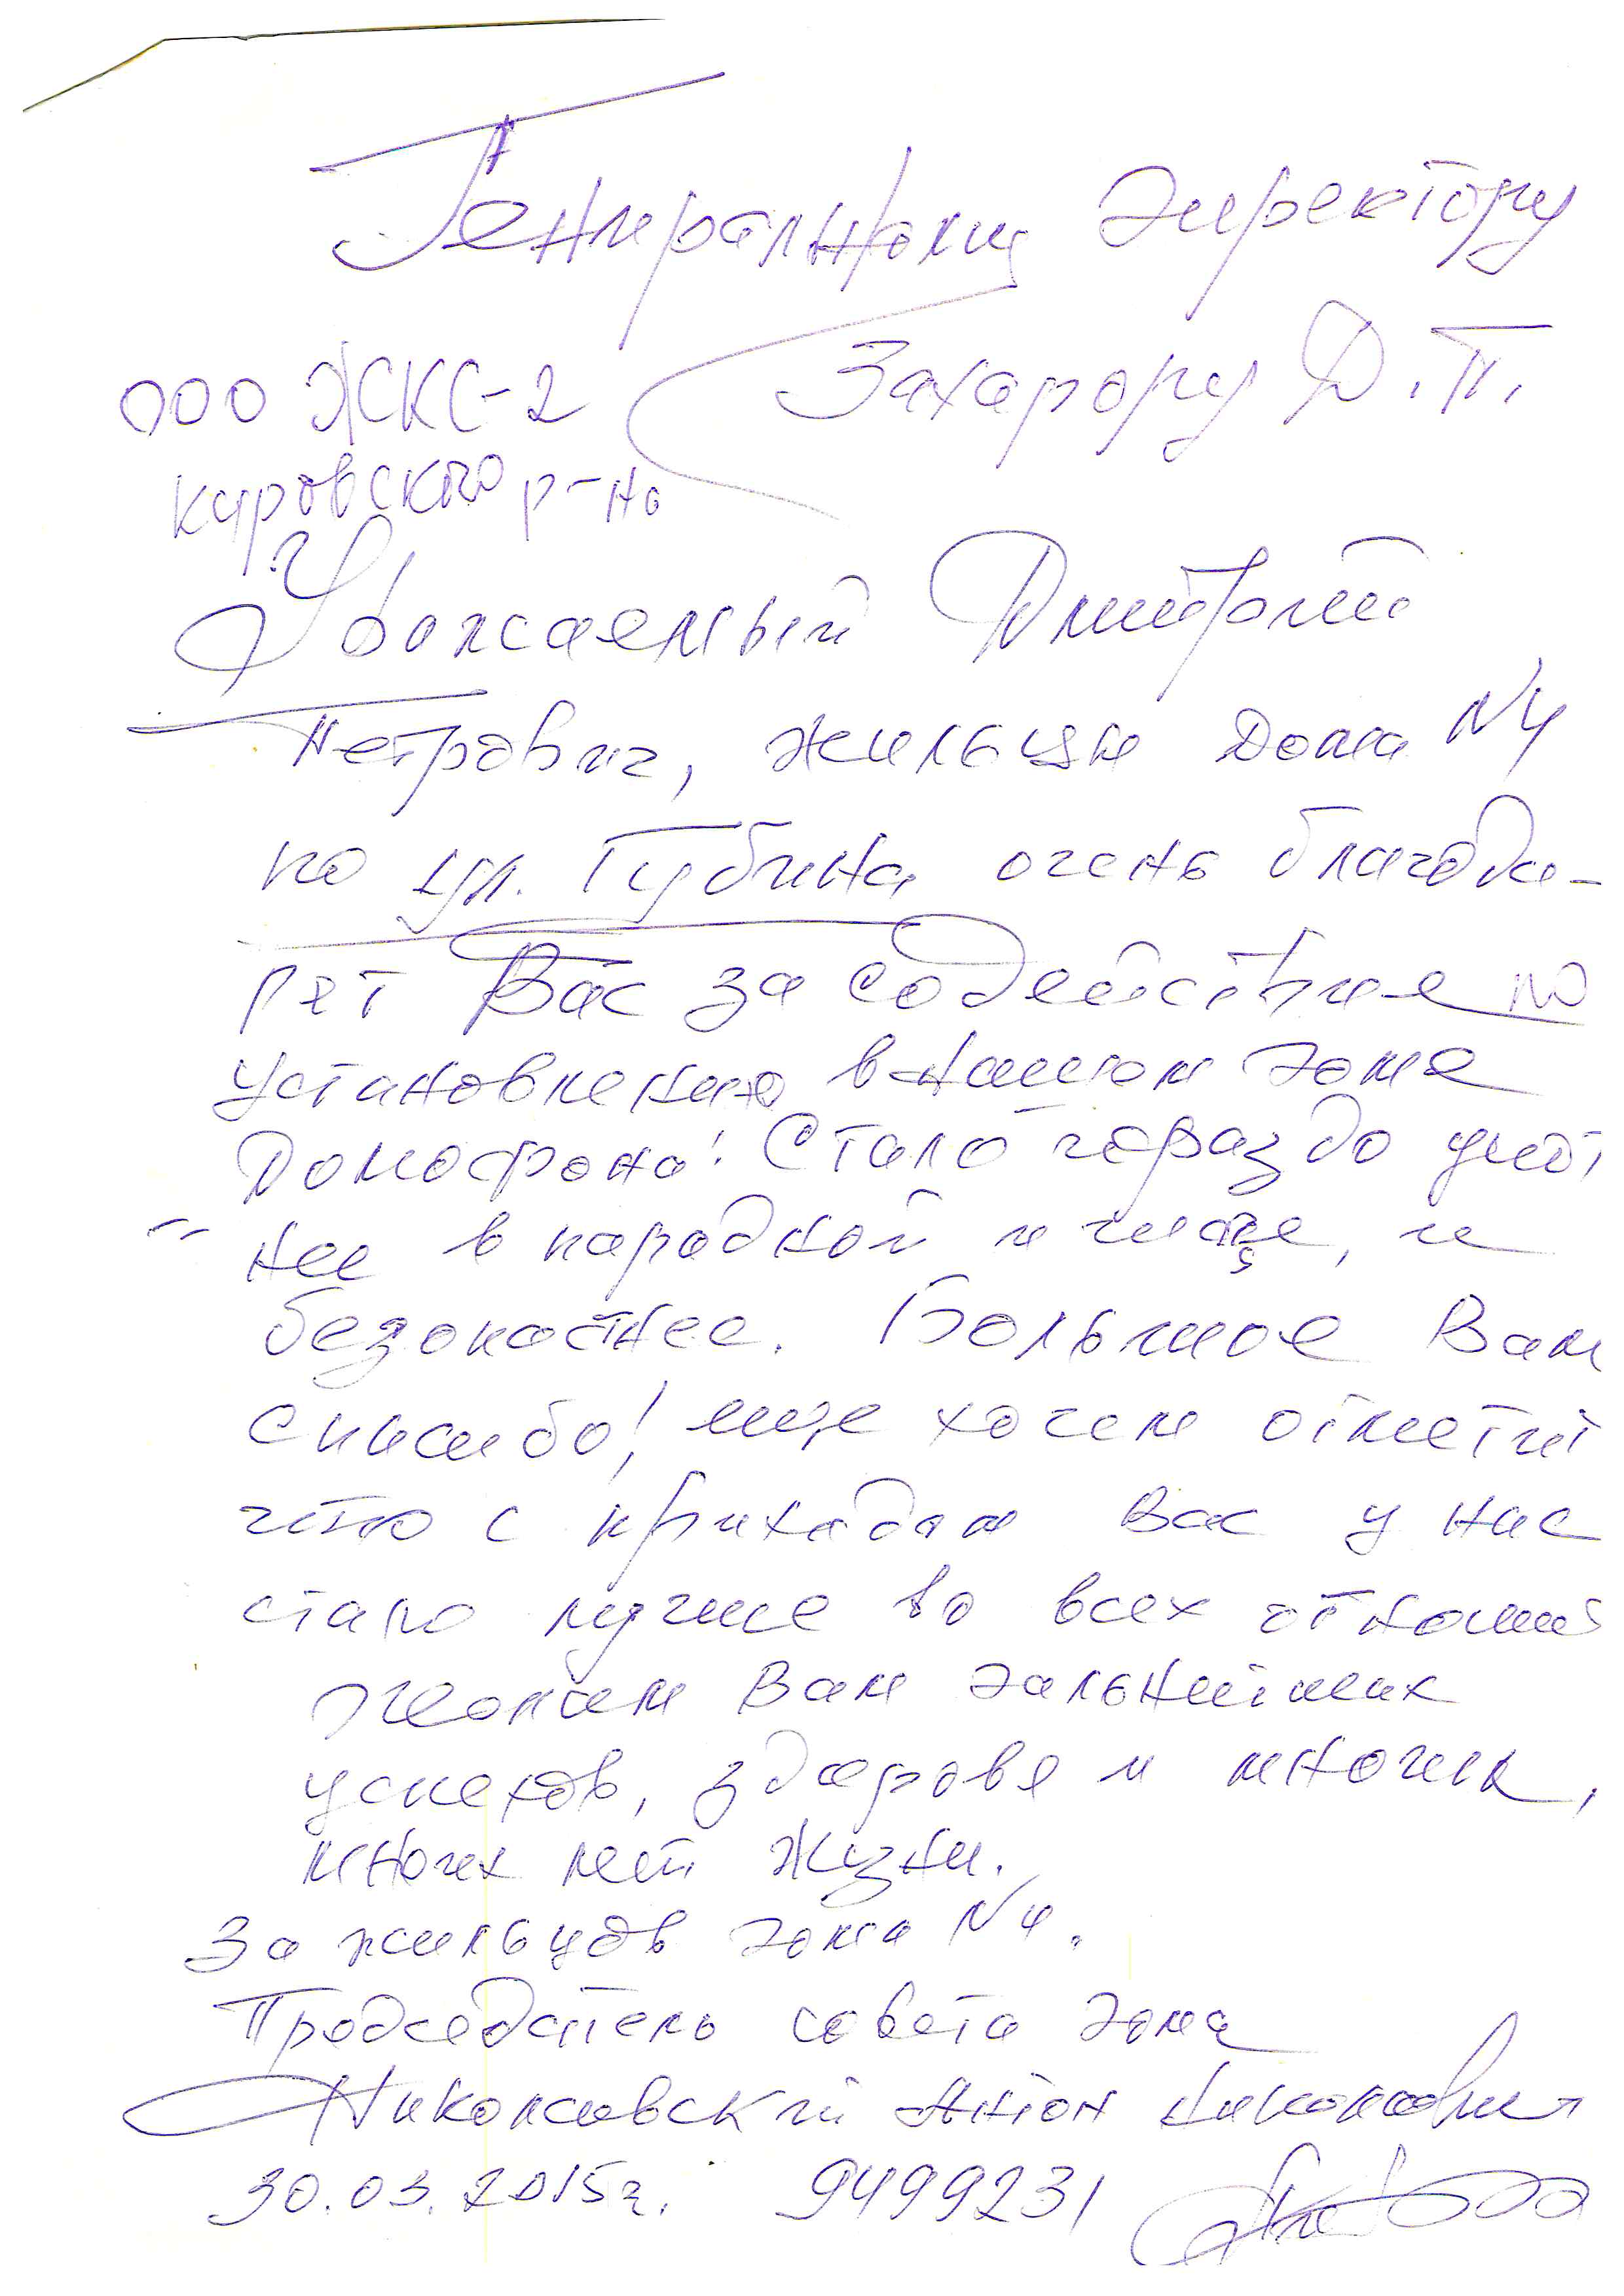 Гениральному директору
Захарову Д.П.
ООО ЖКС-2
Кировского р-на
Уважаемый Дмитрий
Петрович, жильцы дома N4
по ул. Губина очень благода-
рят Вас за содействие по
установлению в нашем доме
Домофона! Стало гораздо уют
нее в парадной и чище, и
безопаснее. Большое Вам
спасибо! еще хотем отметит
что с приходом Вас у нас
стало лучше во всех отноше
Желаем Вам дальнейших
успехов, здаровя и многих,
многих лет жизни.
За жильцов дома N4.
Председатель совета дома
Николаевский Антон Николаевич
30.03.2015г. 9499231